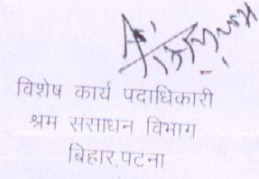 विशेष कार्य पदाधिकारी
श्रम संसाधन विभाग
बिहार,पटना